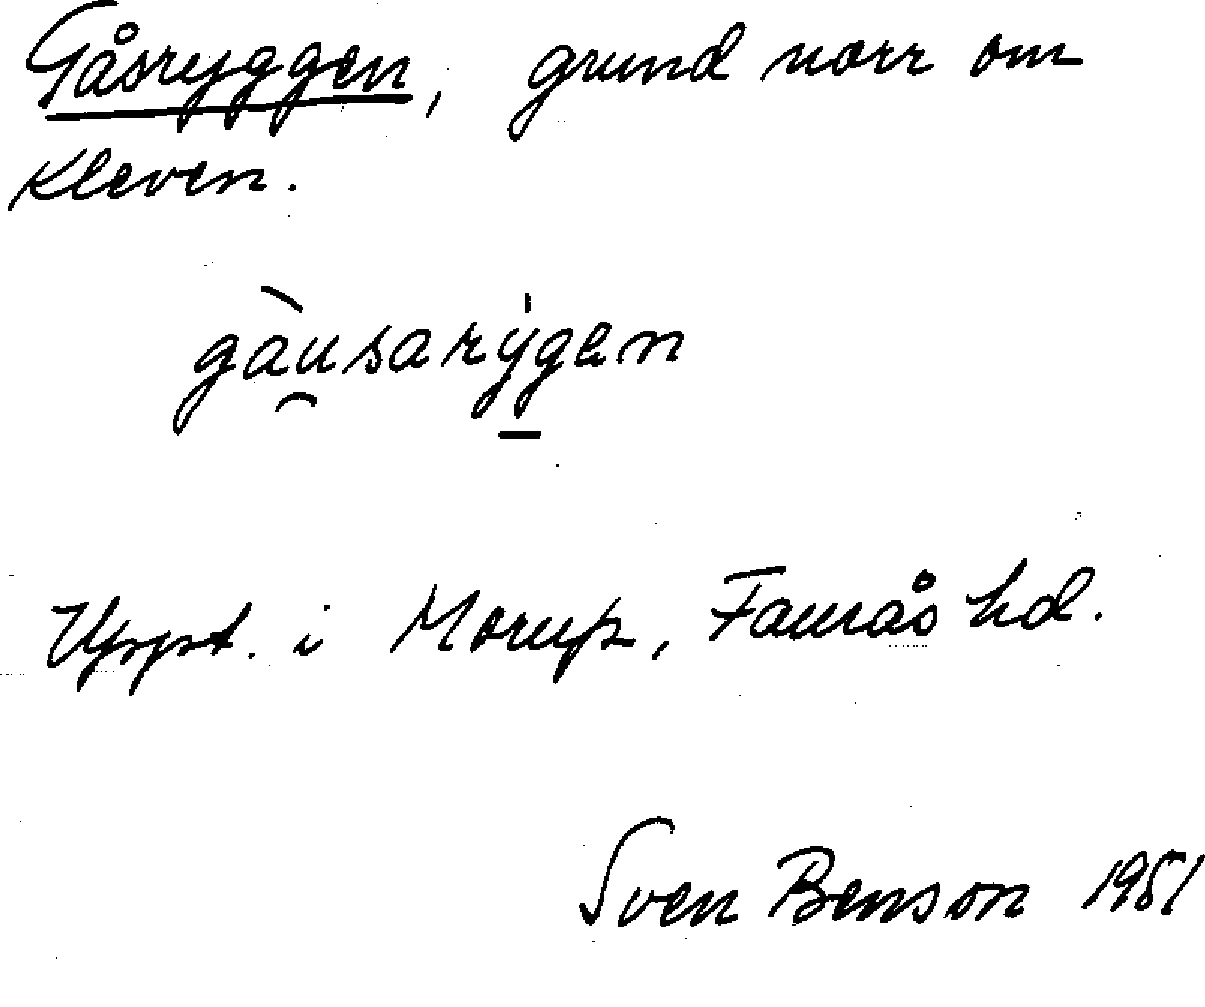 Gåsryggen, grund norr om
Kleven.
gàu̯sarý̱gen
Uppt. i Morup, Faurås hd.
Sven Benson 1951